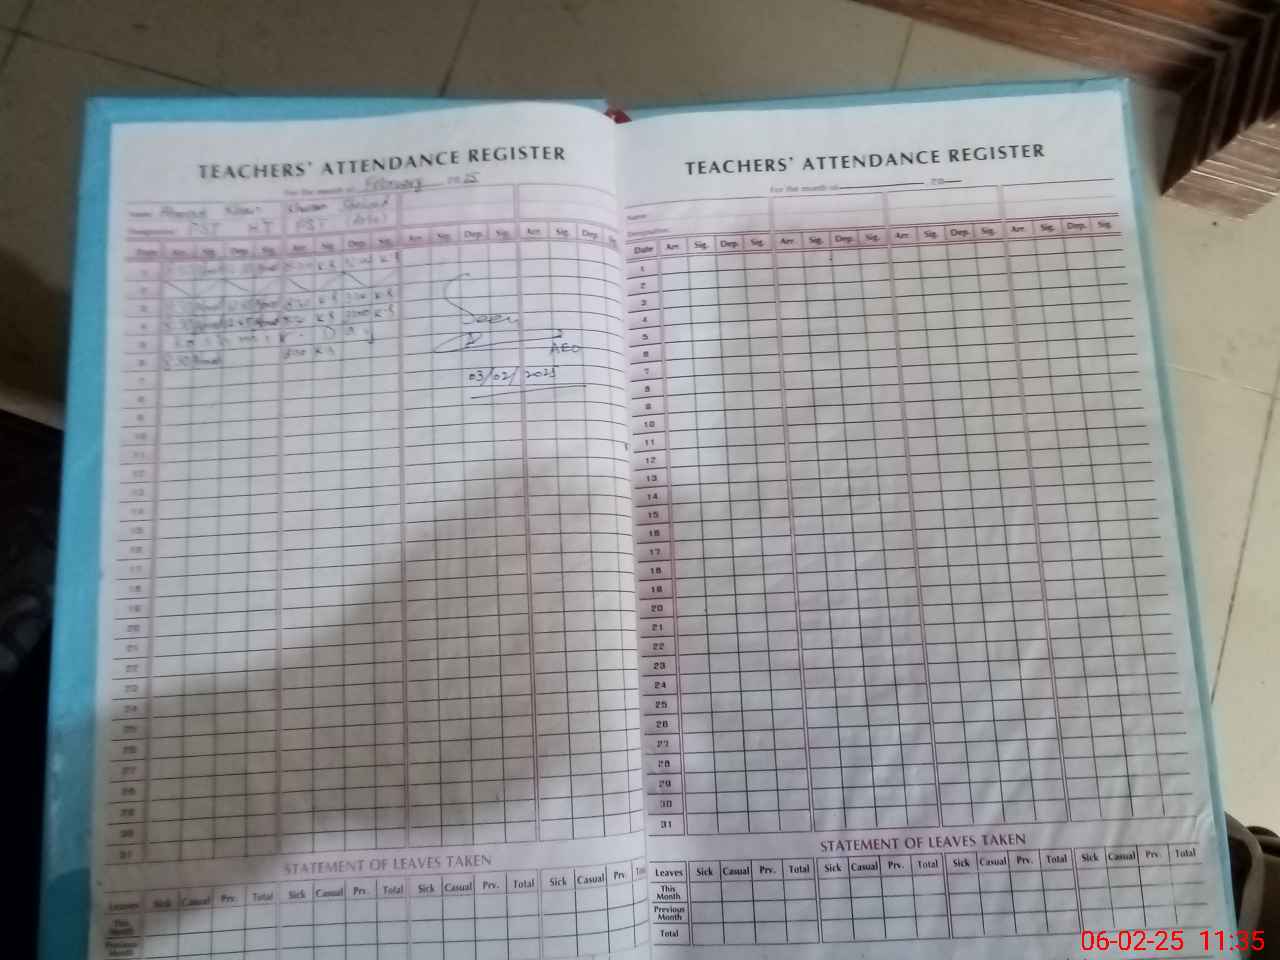 TEACHERS' ATTENDANCE REGISTER
For the month of February 2025
Name
Designation PST PST
Date Arr. Sig. Dep. Sig. Arr. Sig. Dep. Sig. Arr. Sig. Dep. Sig. Arr. Sig. Dep.
1
2
3
4
5
6
7
8
9
10
11
12
13
14
15
16
17
18
19
20
21
22
23
24
25
26
27
28
29
30
31
Seen
AEO
03/02/2025
STATEMENT OF LEAVES TAKEN
Leaves Sick Casual Prv. Total Sick Casual Prv. Total Sick Casual Prv. Total Sick Casual Prv.
This Month
Previous Month
TEACHERS' ATTENDANCE REGISTER
For the month of 20
Name
Designation
Date Arr. Sig. Dep. Sig. Arr. Sig. Dep. Sig. Arr. Sig. Dep. Sig. Arr. Sig. Dep. Sig.
1
2
3
4
5
6
7
8
9
10
11
12
13
14
15
16
17
18
19
20
21
22
23
24
25
26
27
28
29
30
31
STATEMENT OF LEAVES TAKEN
Leaves Sick Casual Prv. Total Sick Casual Prv. Total Sick Casual Prv. Total Sick Casual Prv. Total
This Month
Previous Month
Total
06-02-25 11:35